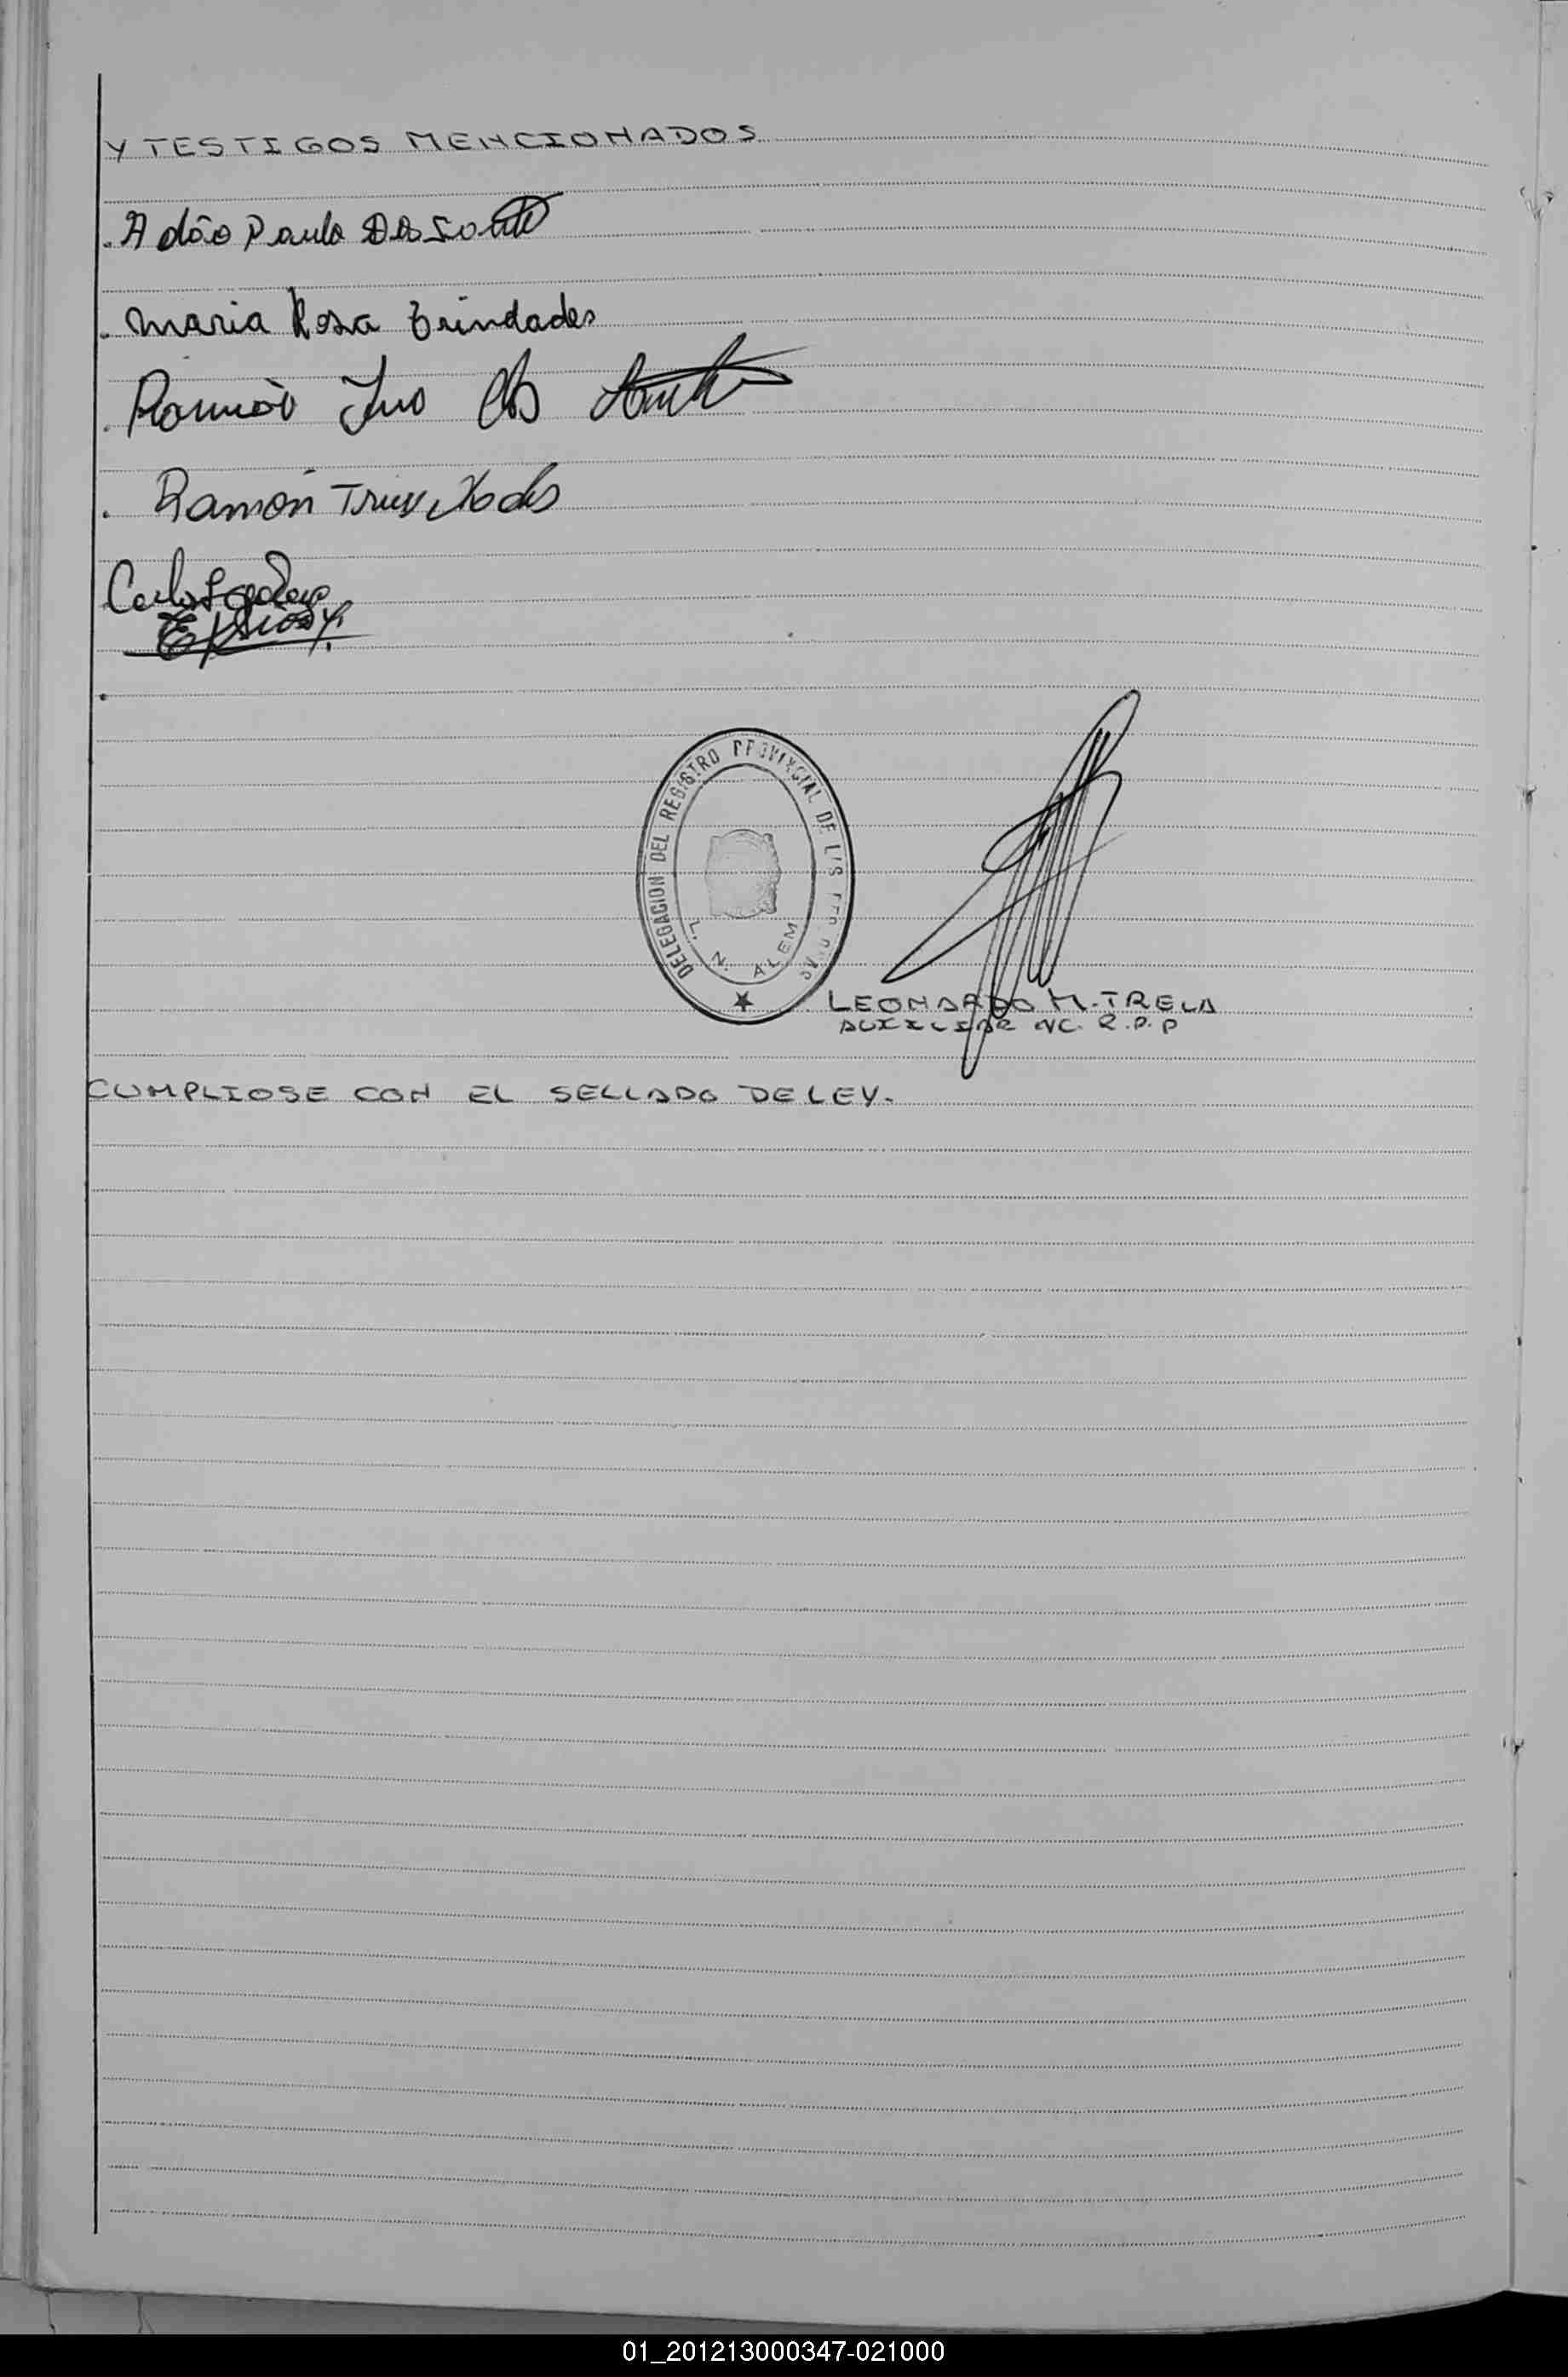 Y TESTIGOS MENCIONADOS
. Adão Paulo Dos
. Maria Rosa Trindades
. Dos
. Ramón Trindades
Carlos
DELEGACION DEL REGISTRO PROVINCIAL DE LAS PERSONAS
L. N. ALEM
LEONARDO M. TRELA
AUXILIAR NC. R.P.P
CUMPLIOSE CON EL SELLADO DE LEY.
01_201213000347-021000